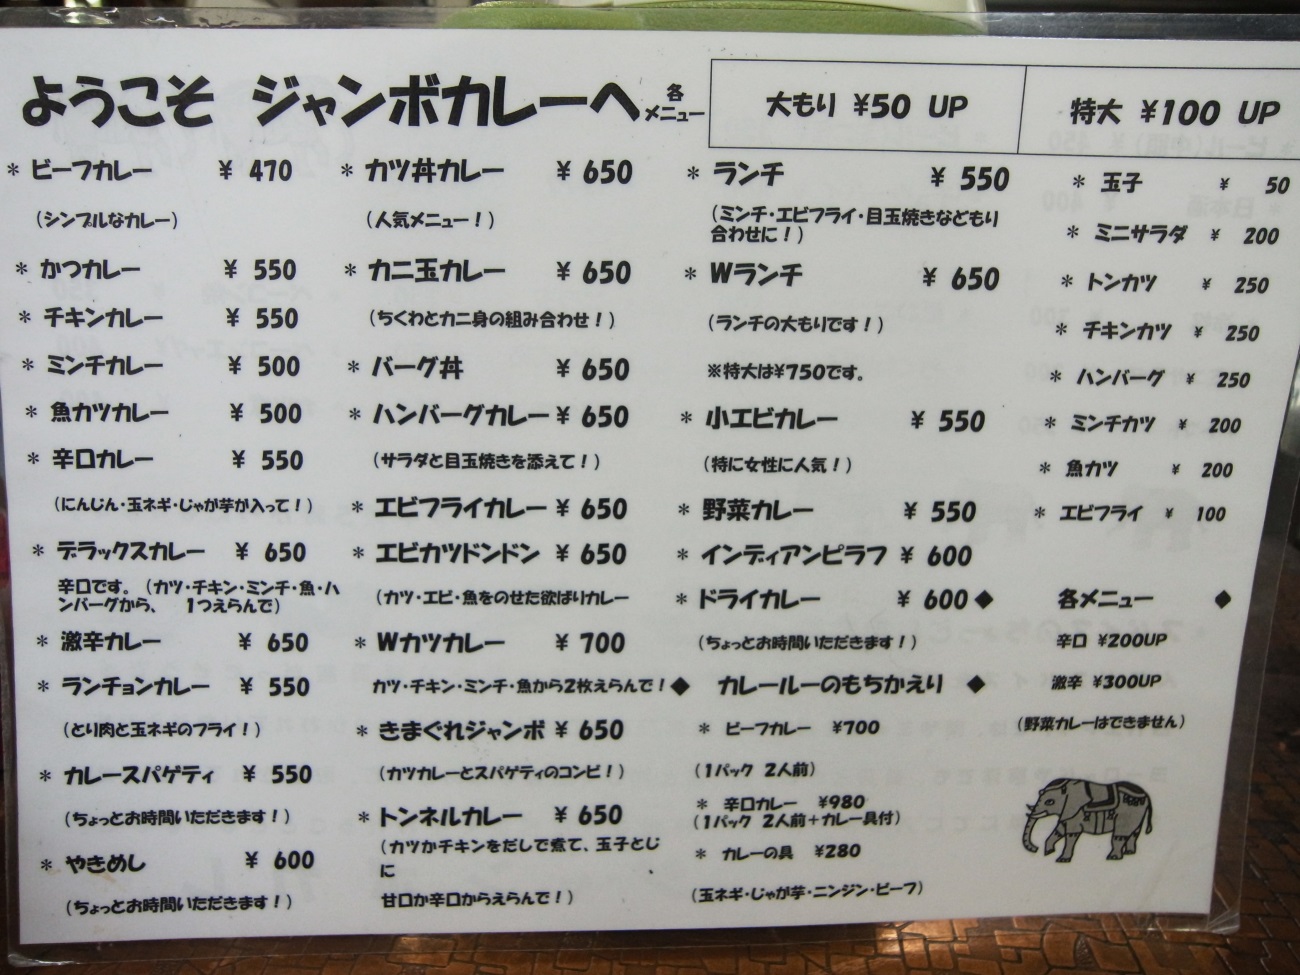 ようこそ ジャンボカレーへ 各メニュー
大もり ¥50 UP
特大 ¥100 UP
* ビーフカレー ¥ 470
(シンプルなカレー)
* かつカレー ¥ 550
* チキンカレー ¥ 550
* ミンチカレー ¥ 500
* 魚カツカレー ¥ 500
* 辛口カレー ¥ 550
(にんじん・玉ネギ・じゃが芋が入って!)
* デラックスカレー ¥ 650
辛口です。(カツ・チキン・ミンチ・魚・ハ
ンバーグから、 1つえらんで)
* 激辛カレー ¥ 650
* ランチョンカレー ¥ 550
(とり肉と玉ネギのフライ!)
* カレースパゲティ ¥ 550
(ちょっとお時間いただきます!)
* やきめし ¥ 600
(ちょっとお時間いただきます!)
* カツ丼カレー ¥ 650
(人気メニュー!)
* カニ玉カレー ¥ 650
(ちくわとカニ身の組み合わせ!)
* バーグ丼 ¥ 650
* ハンバーグカレー ¥ 650
(サラダと目玉焼きを添えて!)
* エビフライカレー ¥ 650
* エビカツドンドン ¥ 650
(カツ・エビ・魚をのせた欲ばりカレー
* Wカツカレー ¥ 700
カツ・チキン・ミンチ・魚から2枚えらんで!
* きまぐれジャンボ ¥ 650
(カツカレーとスパゲティのコンビ!)
* トンネルカレー ¥ 650
(カツかチキンをだしで煮て、玉子とじ
に
甘口か辛口からえらんで!)
* ランチ ¥ 550
(ミンチ・エビフライ・目玉焼きなどもり
合わせに!)
* Wランチ ¥ 650
(ランチの大もりです!)
※特大は¥750です。
* 小エビカレー ¥ 550
(特に女性に人気!)
* 野菜カレー ¥ 550
* インディアンピラフ ¥ 600
* ドライカレー ¥ 600
(ちょっとお時間いただきます!)
◆ カレールーのもちかえり ◆
* ビーフカレー ¥700
(1パック 2人前)
* 辛口カレー ¥980
(1パック 2人前+カレー具付)
* カレーの具 ¥280
(玉ネギ・じゃが芋・ニンジン・ビーフ)
* 玉子 ¥ 50
* ミニサラダ ¥ 200
* トンカツ ¥ 250
* チキンカツ ¥ 250
* ハンバーグ ¥ 250
* ミンチカツ ¥ 200
* 魚カツ ¥ 200
* エビフライ ¥ 100
◆ 各メニュー ◆
辛口 ¥200UP
激辛 ¥300UP
(野菜カレーはできません)